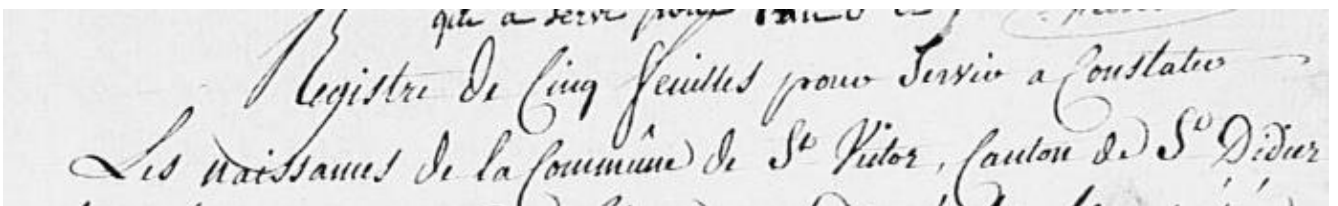 qui a servi pour l'an
Registre de Cinq feuilles pour Servir a Constater
Les naissances de la Commune de St Victor, Canton de St Didier